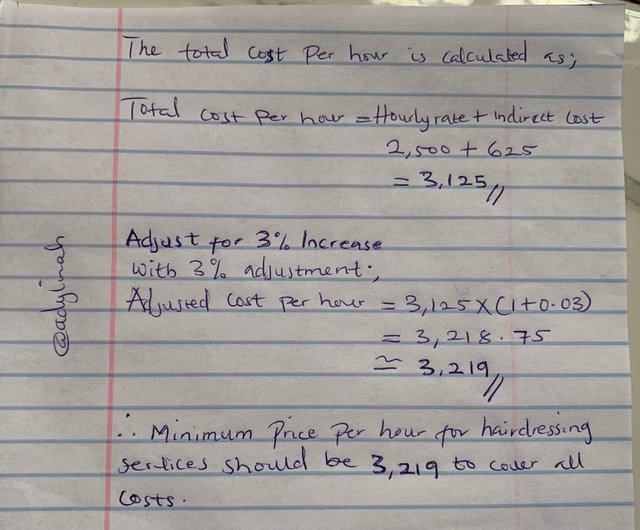 The total cost per hour is calculated as;
Total cost per hour = Hourly rate + indirect cost
2,500 + 625
= 3,125//
Adjust for 3% Increase
with 3% adjustment;
Adjusted cost per hour = 3,125 X (1+0.03)
= 3,218.75
≃ 3,219//
∴ Minimum Price per hour for hairdressing
services should be 3,219 to cover all
costs.
@adylinah